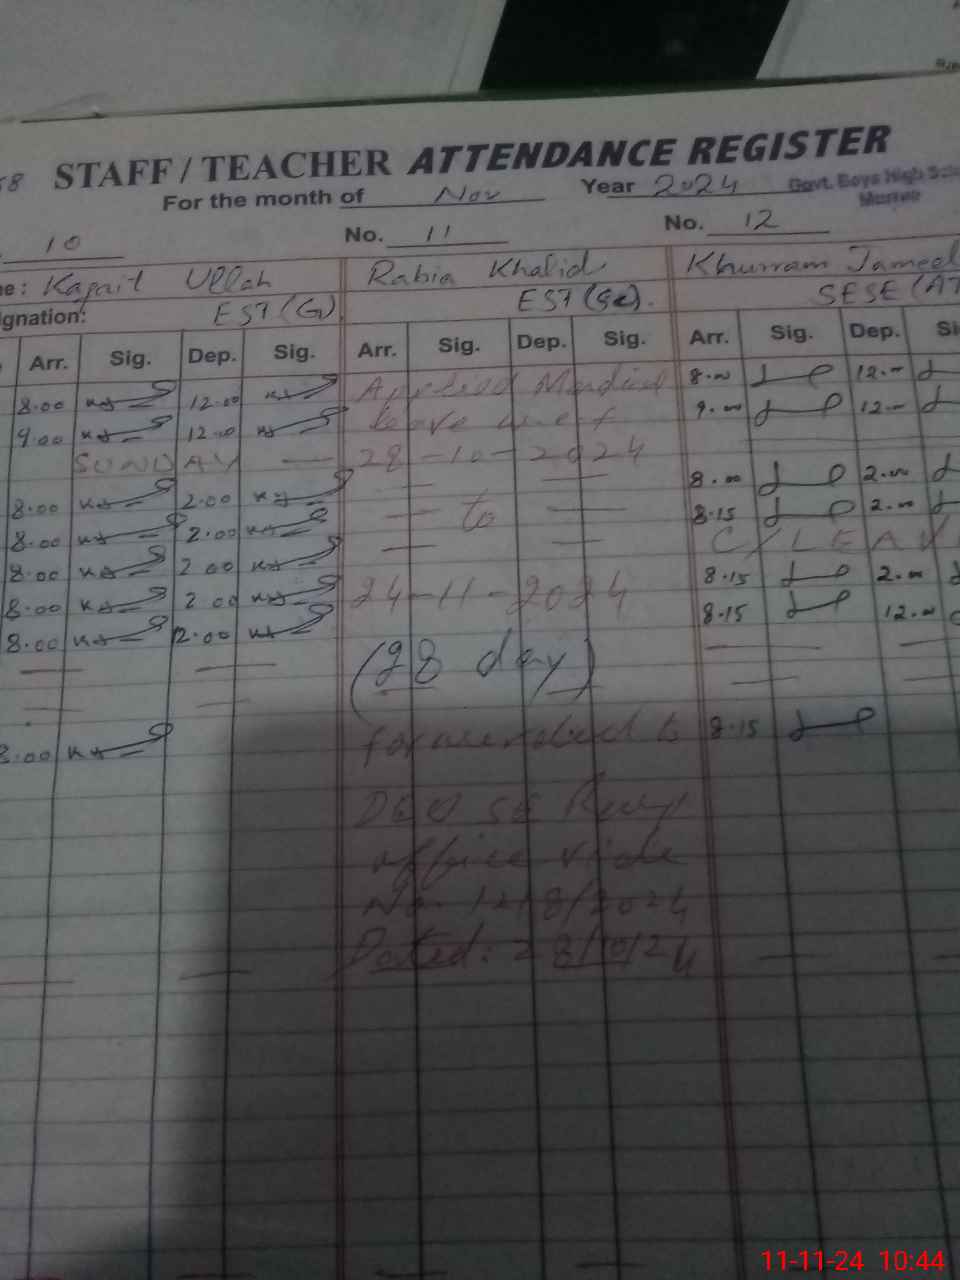 58 STAFF / TEACHER ATTENDANCE REGISTER
For the month of Nov Year 2024 Govt. Boys High
10 No. 11 No. 12
me: Kafait Ullah Rabia Khalid Khurram Jameel
ignation: EST (G) EST (Sc). SESE (AT
Arr. Sig. Dep. Sig. Arr. Sig. Dep. Sig. Arr. Sig. Dep. Si
8.00 12.00 Applied Medical 8.00 12.00
9.00 12.00 leave w.e.f 9.00 12.00
SUNDAY — 28-10-2024
8.00 2.00 8.00 2.00
8.00 2.00 to 8.15 2.00
8.00 2.00 C/LEAV
8.00 2.00 24-11-2024 8.15 2.00
8.00 12.00 8.15 12.00
(28 day)
8.00 8.15
DEO SE
office vide
No. 1218/2024
Dated: 28/10/24
11-11-24 10:44